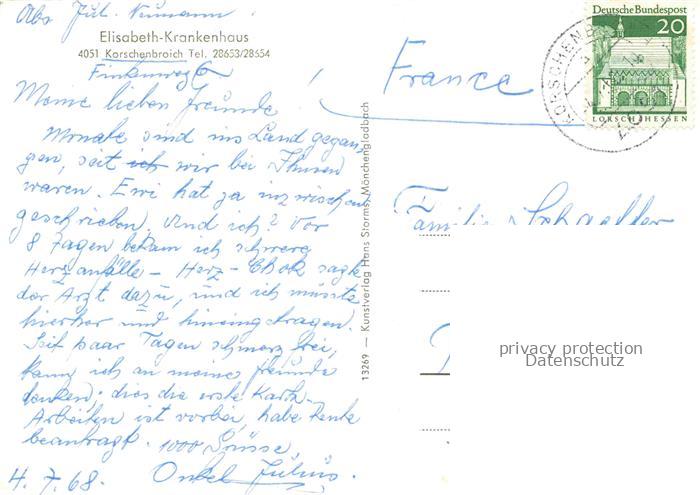 Abs Jul. Neumann
Elisabeth-Krankenhaus
4051 Korschenbroich Tel. 28653/28654
Finkenweg 6
Meine lieben Freunde!
Monate sind ins Land gegan-
gen, seit ich wir bei Ihnen
waren. Ewi hat ja inzwischen
geschrieben. Und ich? Vor
8 Tagen bekam ich schwere
Herzanfälle – Herz-Chok sagte
der Arzt dazu, und ich müsste
hierher und hineingetragen.
Seit paar Tagen schmerzfrei,
kann ich an meine Freunde
denken; dies die erste Karte.
Arbeiten ist vorbei, habe Rente
beantragt. 1000 Grüsse
4.7.68. Onkel Julius.
13269 — Kunstverlag Hans Storms, Mönchengladbach
Deutsche Bundespost
20
LORSCH/HESSEN
KORSCHENB
France
Familie
privacy protection
Datenschutz